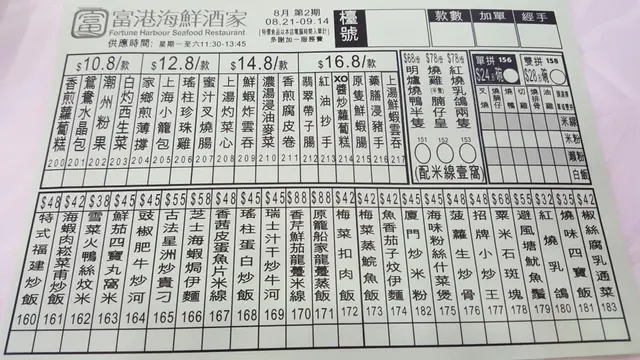 富 富港海鮮酒家
Fortune Harbour Seafood Restaurant
供應時間: 星期一至六11:30-13:45
8月 第2期
08.21-09.14
多謝加一服務費
檯號
款數 加單 經手
$10.8/款
香煎蘿蔔糕 200
鴛鴦水晶包 201
潮州粉果 202
白灼西生菜 203
$12.8/款
家鄉煎薄撐 204
上海小籠包 205
瑤柱珍珠雞 206
蜜汁叉燒腸 207
$14.8/款
上湯灼菜心 208
鮮蝦雲吞 209
濃湯浸油麥菜 210
香煎腐皮卷 211
$16.8/款
翡翠帶子腸 212
紅油抄手 213
XO醬炒蘿蔔糕 214
原隻鮮蝦腸 215
藥膳浸豬手 216
上湯鮮蝦雲吞 217
$68/份 明爐燒鴨半隻 151
$78/份 燒雞(半隻)腩仔皇 152
$78/份 紅燒乳鴿兩隻 153
(配米線壹窩)
單拼 156
$24/碗
雙拼 158
$28/碗
叉燒
燒腩仔
燒鴨
切雞
燒排骨
油雞
米線
米粉
瀨粉
白飯
$48 特式福建炒飯 160
$42 海蝦肉崧菜甫炒飯 161
$38 雪菜火鴨絲炆米 162
$45 鮮茄四寶丸窩米 163
$45 豉椒肥牛炒河 164
$55 古法星洲炒貴刁 165
$58 芝士海蝦焗伊麵 166
$48 香茜皮蛋魚片窩米 167
$48 瑤柱蛋白炒飯 168
$45 瑞士汁干炒牛河 169
$88 香芹鮮茄龍躉米線 170
$88 原籠船家龍躉蒸飯 171
$42 梅菜扣肉飯 172
$42 梅菜蒸鯇魚飯 173
$42 魚香茄子炆伊麵 174
$45 廈門炒米粉 175
$45 海味粉絲什菜煲 176
$48 菠蘿生炒骨 177
$68 招牌小炒王 178
$58 粟米石斑塊 179
$55 避風塘魷魚鬚 179
$32 紅燒乳鴿 180
$35 燒味四寶飯 181
$42 椒絲腐乳通菜 183